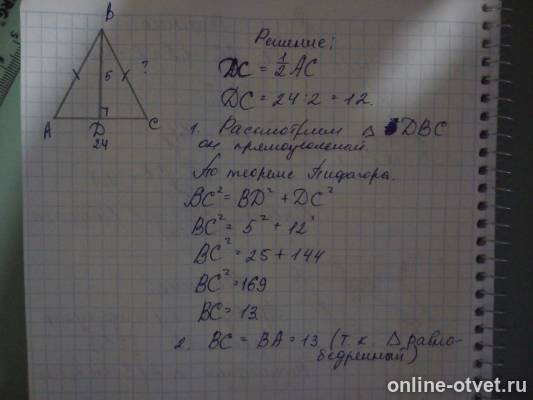 B
5
?
A
D
C
24
Решение:
DC = 1/2 AC
DC = 24:2 = 12.
1. Рассмотрим △ DBC
он прямоугольный.
По теореме Пифагора.
BC² = BD² + DC²
BC² = 5² + 12²
BC² = 25 + 144
BC² = 169
BC = 13.
2. BC = BA = 13 (т.к. △ равно-
бедренный)
online-otvet.ru